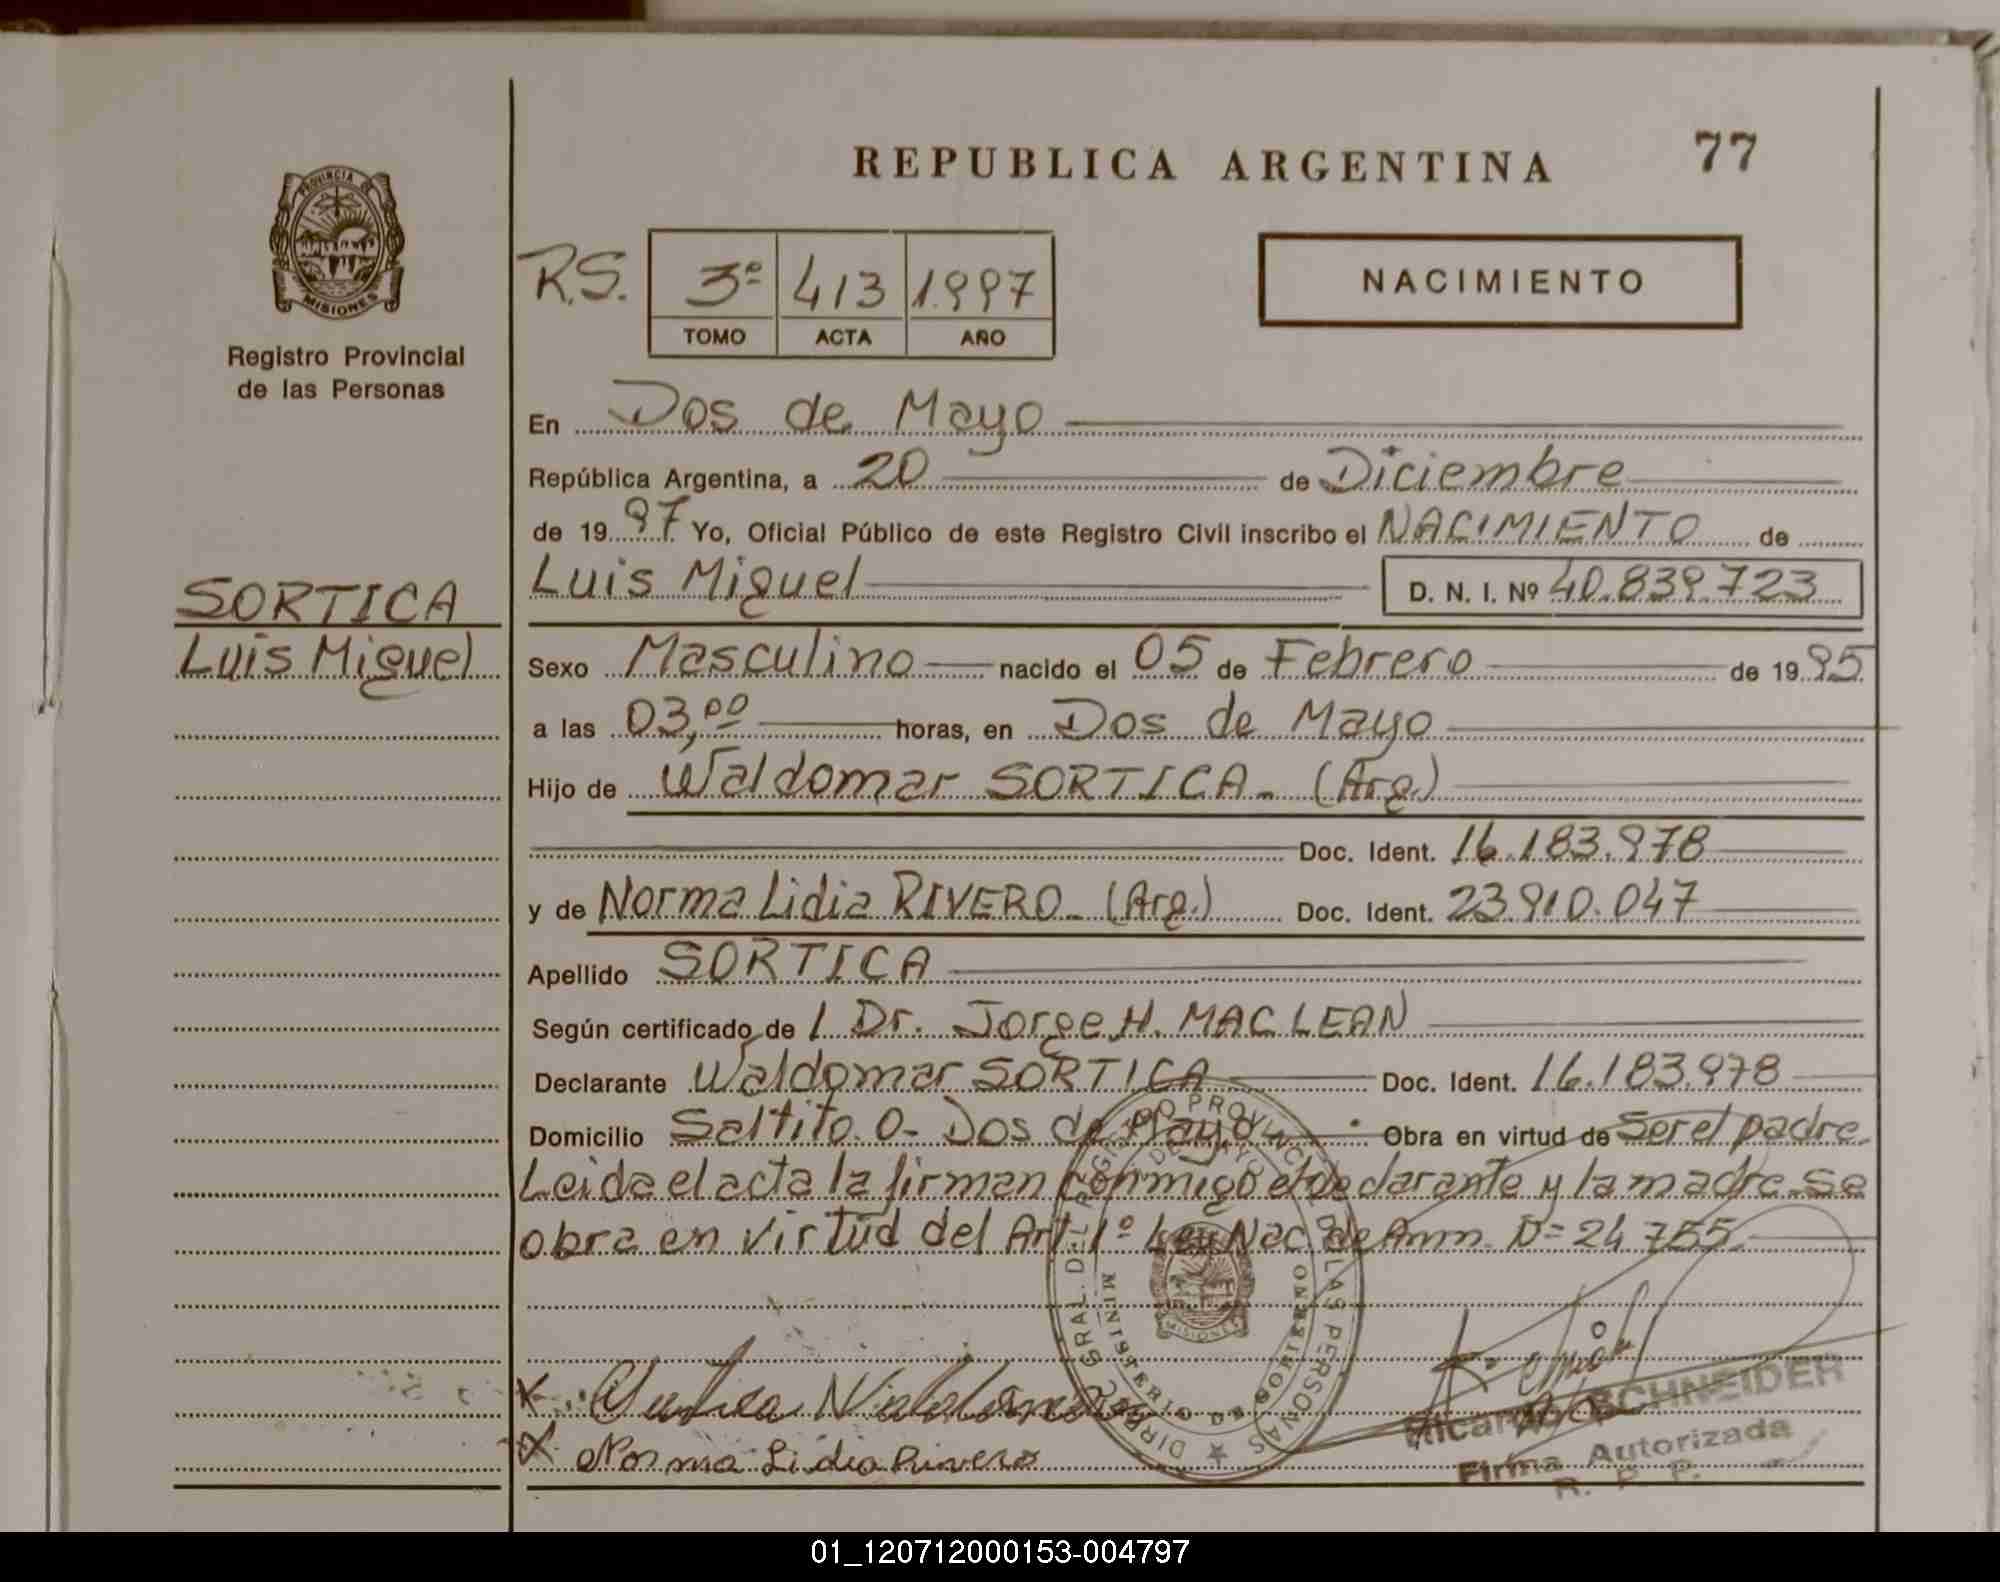 REPUBLICA ARGENTINA
77
PROVINCIA DE
MISIONES
Registro Provincial
de las Personas
R.S.
3º 413 1.997
TOMO ACTA AÑO
NACIMIENTO
En Dos de Mayo
República Argentina, a 20 de Diciembre
de 1997 Yo, Oficial Público de este Registro Civil inscribo el NACIMIENTO de
Luis Miguel D. N. I. Nº 40.839.723
SORTICA
Luis Miguel
Sexo Masculino nacido el 05 de Febrero de 1995
a las 03,00 horas, en Dos de Mayo
Hijo de Waldomar SORTICA - (Arg.)
Doc. Ident. 16.183.978
y de Norma Lidia RIVERO - (Arg.) Doc. Ident. 23.910.047
Apellido SORTICA
Según certificado de / Dr. Jorge H. MAC LEAN
Declarante Waldomar SORTICA Doc. Ident. 16.183.978
Domicilio Saltito O- Dos de Mayo Obra en virtud de Ser el padre.
Leida el acta la firman conmigo el declarante y la madre. Se
obra en virtud del Art. 1º Ley Nac. de Amn. Nº 24.755
DIREC. GRAL. DEL REGISTRO PROVINCIAL DE LAS PERSONAS
DOS DE MAYO
MINISTERIO DE GOBIERNO
MISIONES
X
X Norma Lidia Rivero
Ricardo SCHNEIDER
Firma Autorizada
R. P. P.
01_120712000153-004797